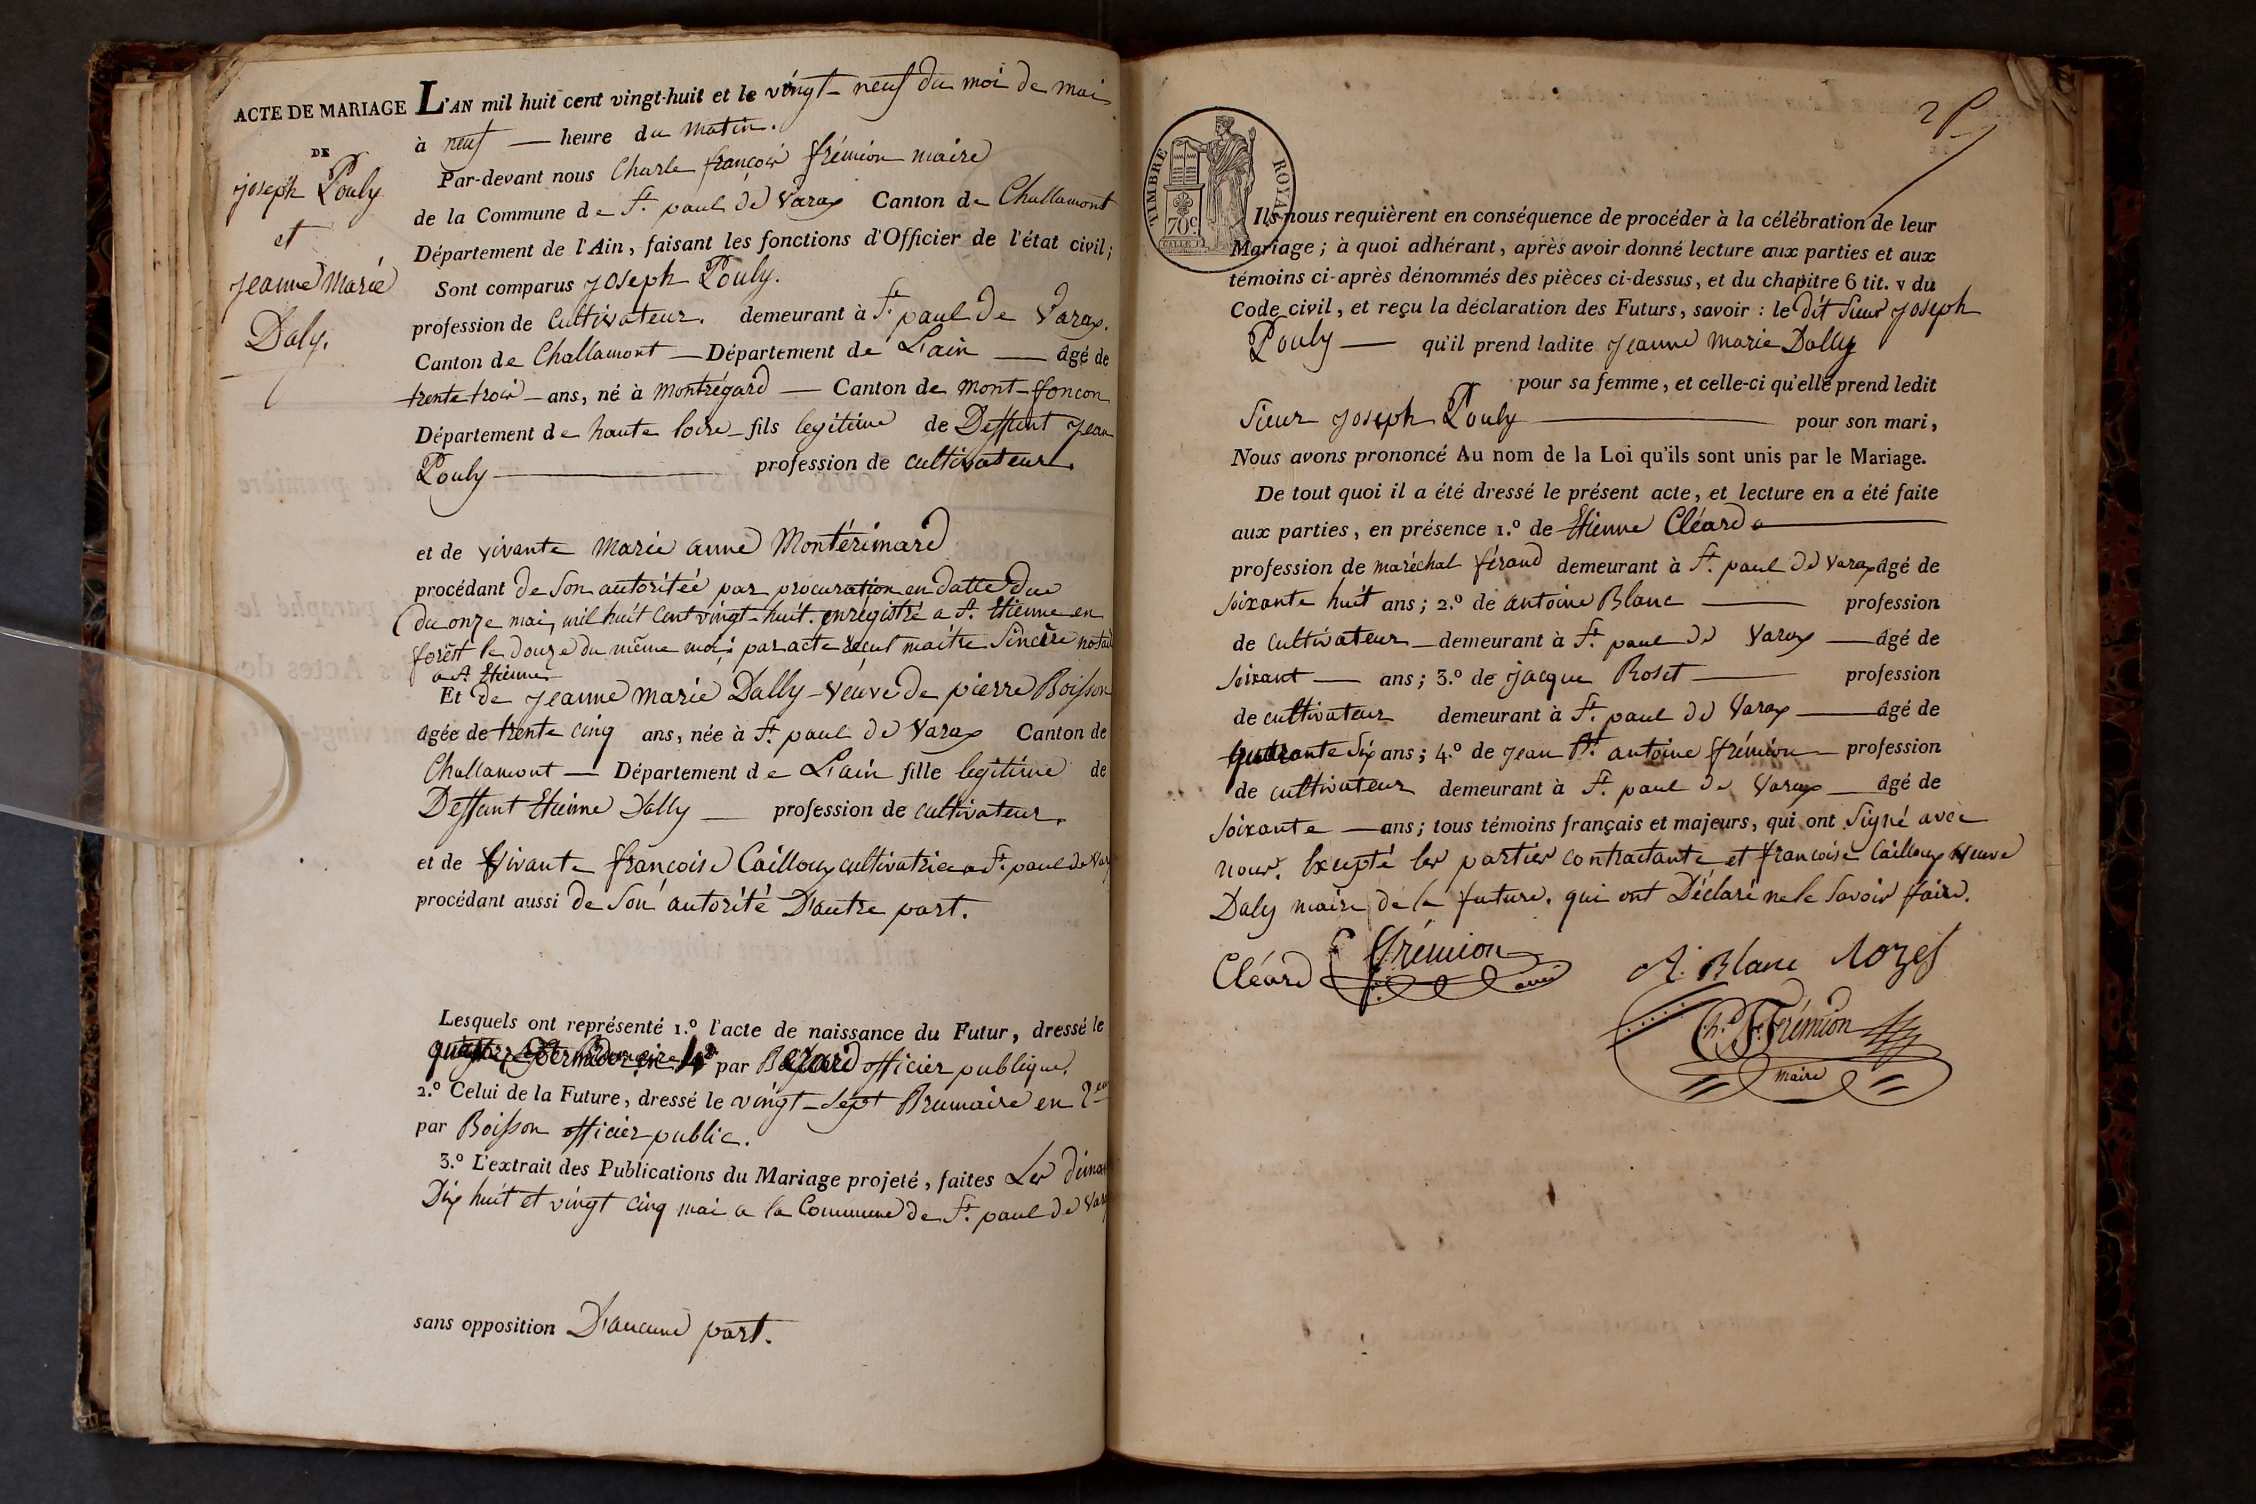 ACTE DE MARIAGE
DE
joseph Pouly
et
jeanne Marie
Daly.
L'AN mil huit cent vingt-huit et le vingt-neuf du moi de mai
à neuf — heure du matin.
Par-devant nous Charle françois frémion maire
de la Commune de St. paul de Varax Canton de Challamont
Département de l'Ain, faisant les fonctions d'Officier de l'état civil;
Sont comparus joseph Pouly.
profession de Cultivateur. demeurant à St. paul de Varax.
Canton de Challamont — Département de L'ain — âgé de
trente trois — ans, né à Montrégard — Canton de Mont-foncon
Département de haute loire — fils legitime de Deffunt jean
Pouly — profession de cultivateur.
et de vivante Marie anne Montérimard
procédant de Son autoritée par procuration en datte du
(du onze mai, mil huit cent vingt-huit. enregistré a St. Etienne en
forêt le douze du même moi; par acte recut maitre Sincère notai
a St. Etienne
Et de jeanne marie Dally — veuve de pierre Boisson
âgée de trente cinq ans, née à St. paul de Varax Canton de
Challamont — Département de L'ain fille legitime de
Deffunt Etienne Dally — profession de cultivateur.
et de vivante françoise Cailloux cultivatrice a St. paul de Var
procédant aussi de Son autorité D'autre part.
Lesquels ont représenté 1.º l'acte de naissance du Futur, dressé le
par officier publique.
2.º Celui de la Future, dressé le vingt-sept Brumaire en 2em
par Boisson officier public.
3.º L'extrait des Publications du Mariage projeté, faites Les diman
Dix huit et vingt cinq mai a la Commune de St. paul de Vara
sans opposition D'aucune part.
TIMBRE ROYAL
70c
Ils nous requièrent en conséquence de procéder à la célébration de leur
Mariage; à quoi adhérant, après avoir donné lecture aux parties et aux
témoins ci-après dénommés des pièces ci-dessus, et du chapitre 6 tit. v du
Code civil, et reçu la déclaration des Futurs, savoir : le dit Sieur joseph
Pouly — qu'il prend ladite jeanne marie Dally
pour sa femme, et celle-ci qu'elle prend ledit
Sieur joseph Pouly — pour son mari,
Nous avons prononcé Au nom de la Loi qu'ils sont unis par le Mariage.
De tout quoi il a été dressé le présent acte, et lecture en a été faite
aux parties, en présence 1.º de Etienne Cléard
profession de maréchal férand demeurant à St. paul de Varax âgé de
soixante huit ans; 2.º de antoine Blanc — profession
de cultivateur — demeurant à St. paul de Varax — âgé de
soixant — ans; 3.º de jacque Roset — profession
de cultivateur demeurant à St. paul de Varax — âgé de
quarante six ans; 4.º de jean Bt. antoine frémion — profession
de cultivateur demeurant à St. paul de Varax — âgé de
soixante — ans; tous témoins français et majeurs, qui ont Signé avec
nous. Excepté les parties contractante et francoise Cailloux veuve
Daly maire de la future. qui ont Déclaré ne le Savoir faire.
Cléard frémion A. Blanc Rozet
Ch. F. Frémion
maire